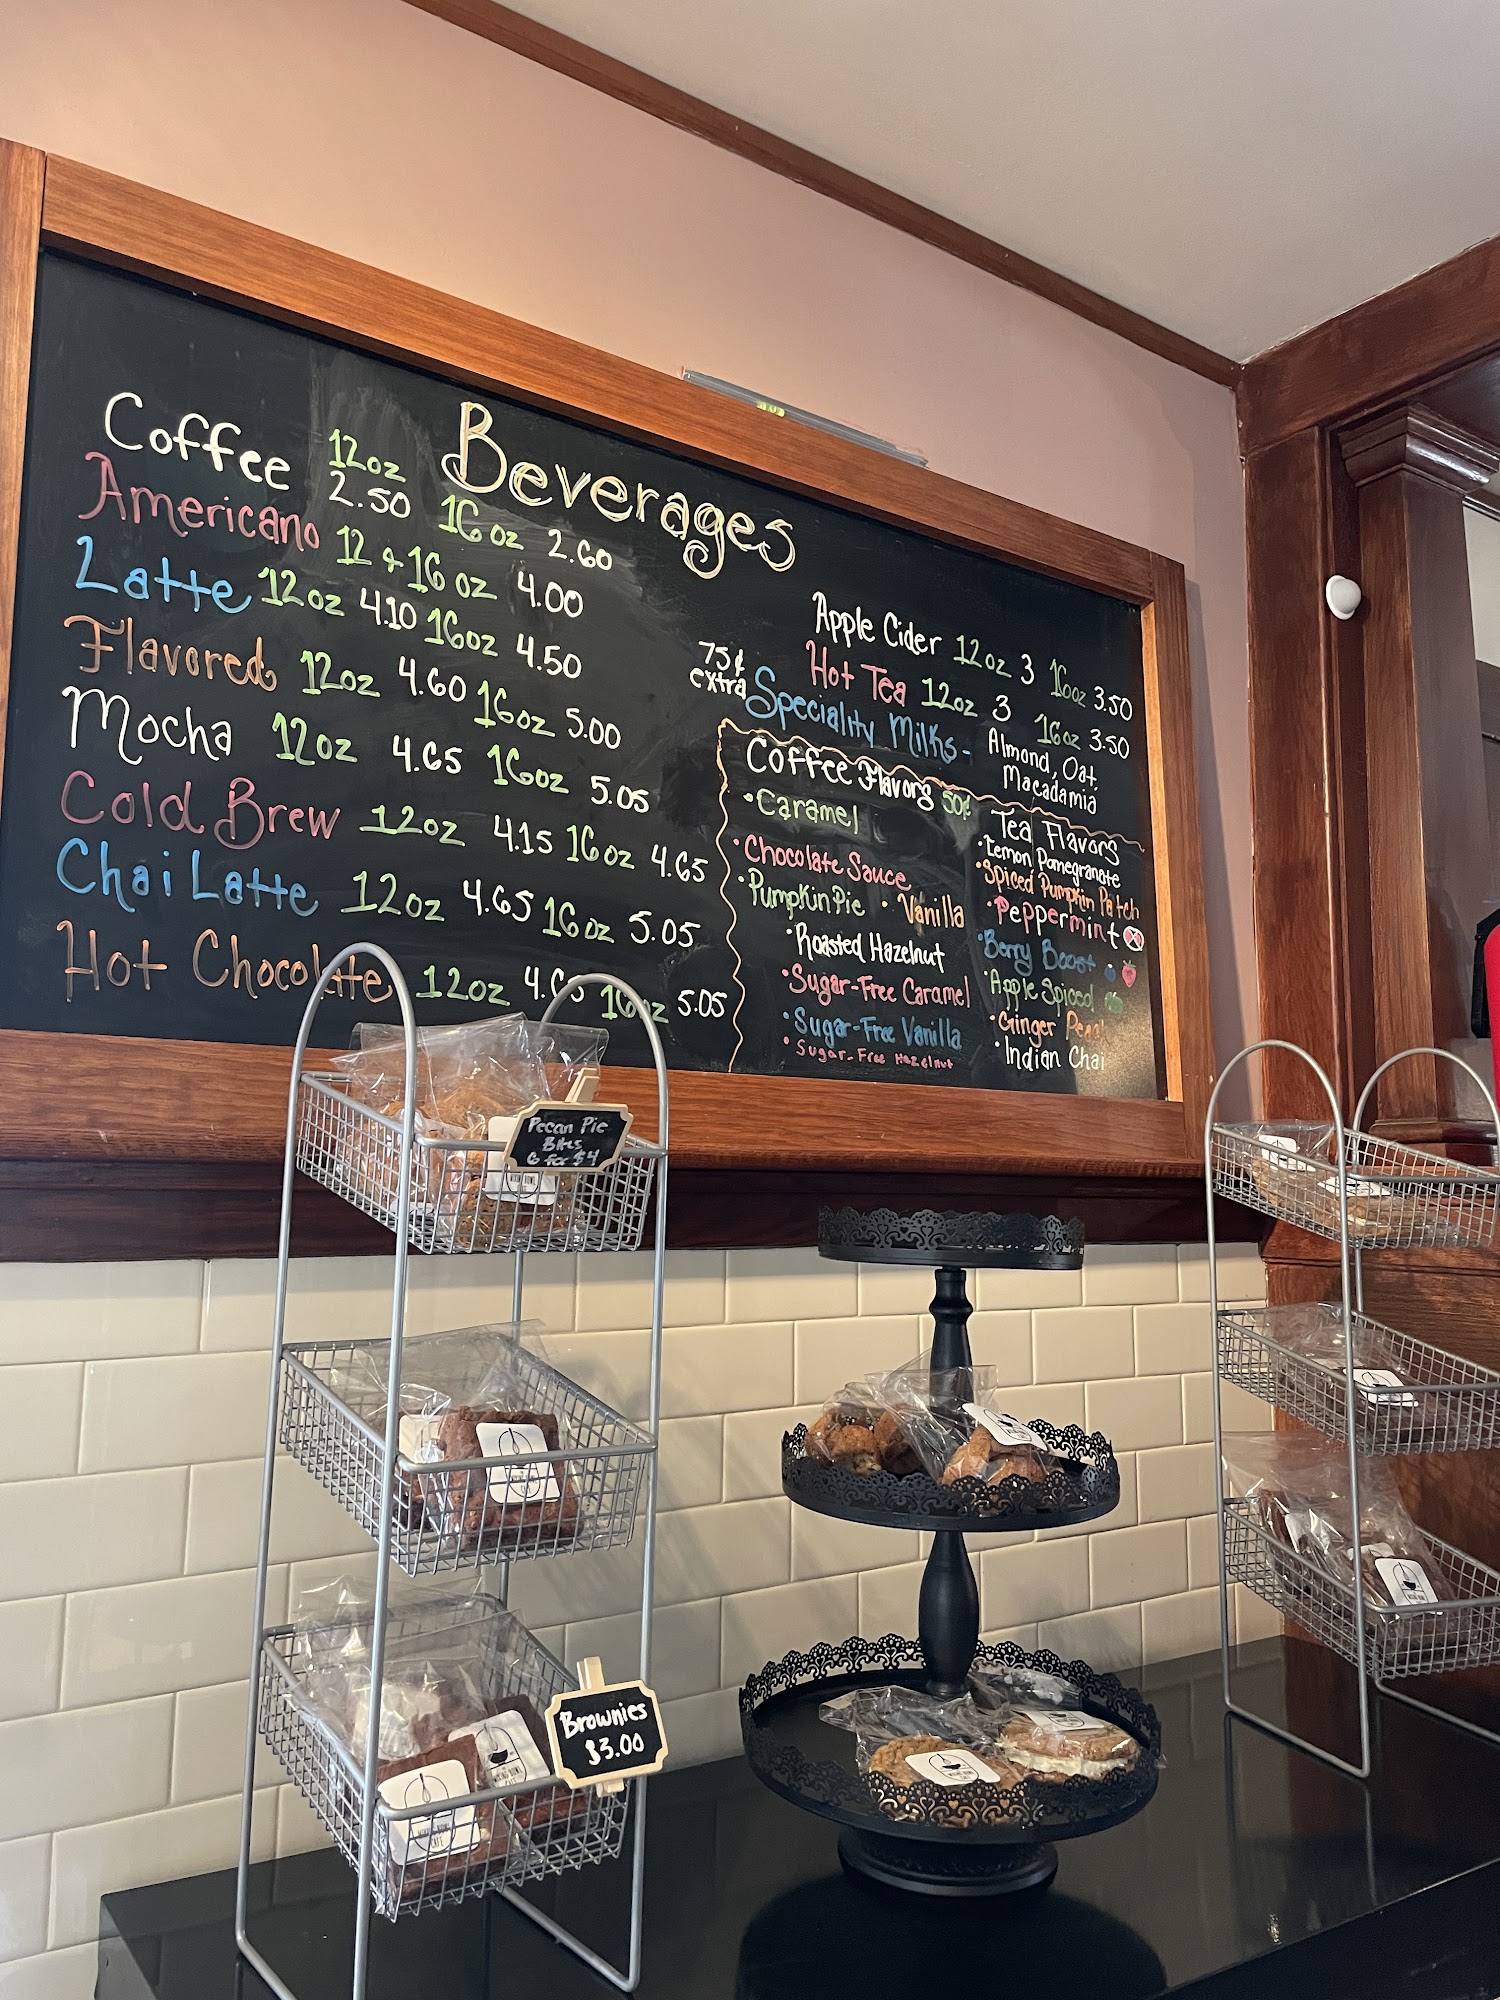 Beverages
Coffee 12oz 2.50 16oz 2.60
Americano 12 & 16 oz 4.00
Latte 12oz 4.10 16oz 4.50
Flavored 12oz 4.60 16oz 5.00
Mocha 12oz 4.65 16oz 5.05
Cold Brew 12oz 4.15 16oz 4.65
Chai Latte 12oz 4.65 16oz 5.05
Hot Chocolate 12oz 4.65 16oz 5.05
Apple Cider 12oz 3 16oz 3.50
Hot Tea 12oz 3 16oz 3.50
75¢
extra
Specialty Milks - Almond, Oat,
Macadamia
Coffee Flavors 50¢
• Caramel
• Chocolate Sauce
• Pumpkin Pie • Vanilla
• Roasted Hazelnut
• Sugar-Free Caramel
• Sugar-Free Vanilla
• Sugar-Free Hazelnut
Tea Flavors
• Lemon Pomegranate
• Spiced Pumpkin Patch
• Peppermint
• Berry Boost
• Apple Spiced
• Ginger
• Indian Chai
Pecan Pie
Bites
6 for $4
Brownies
$3.00
CAFE